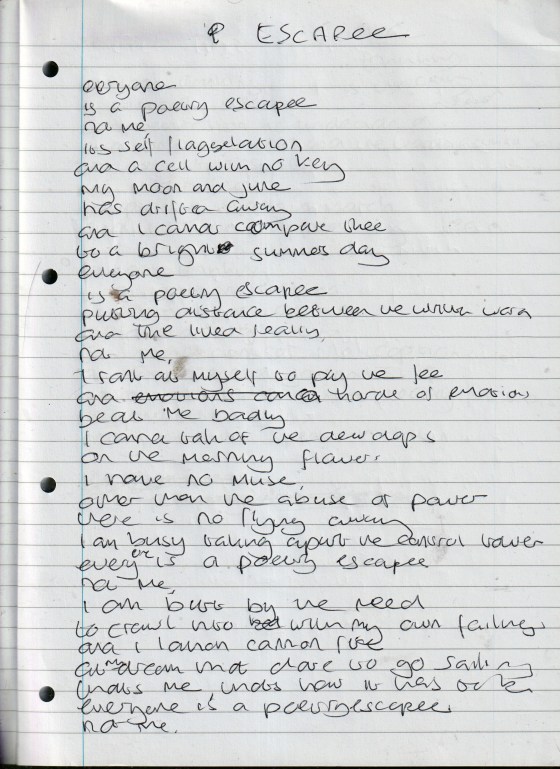 P ESCAPEE
everyone
is a poetry escapee
not me,
its self flaggelation
and a cell with no key
my moon and june
has drifted away
and i cannot compare thee
to a bright summers day
everyone
is a poetry escapee
putting distance between the written word
and the lived reality,
not me,
I rant at myself to pay the fee
and emotions horde of emotions
beat me badly
I cannot talk of the dew drops
on the morning flower.
I have no muse,
other than the abuse of power
there is no flying away
I am busy taking apart the control tower
every one is a poetry escapee
not me,
I am built by the need
to crawl into bed with my own failings
and i launch cannon fire
at dream that dare to go sailing
thats me, thats how it has to be
everyone is a poetry escapee
not me.